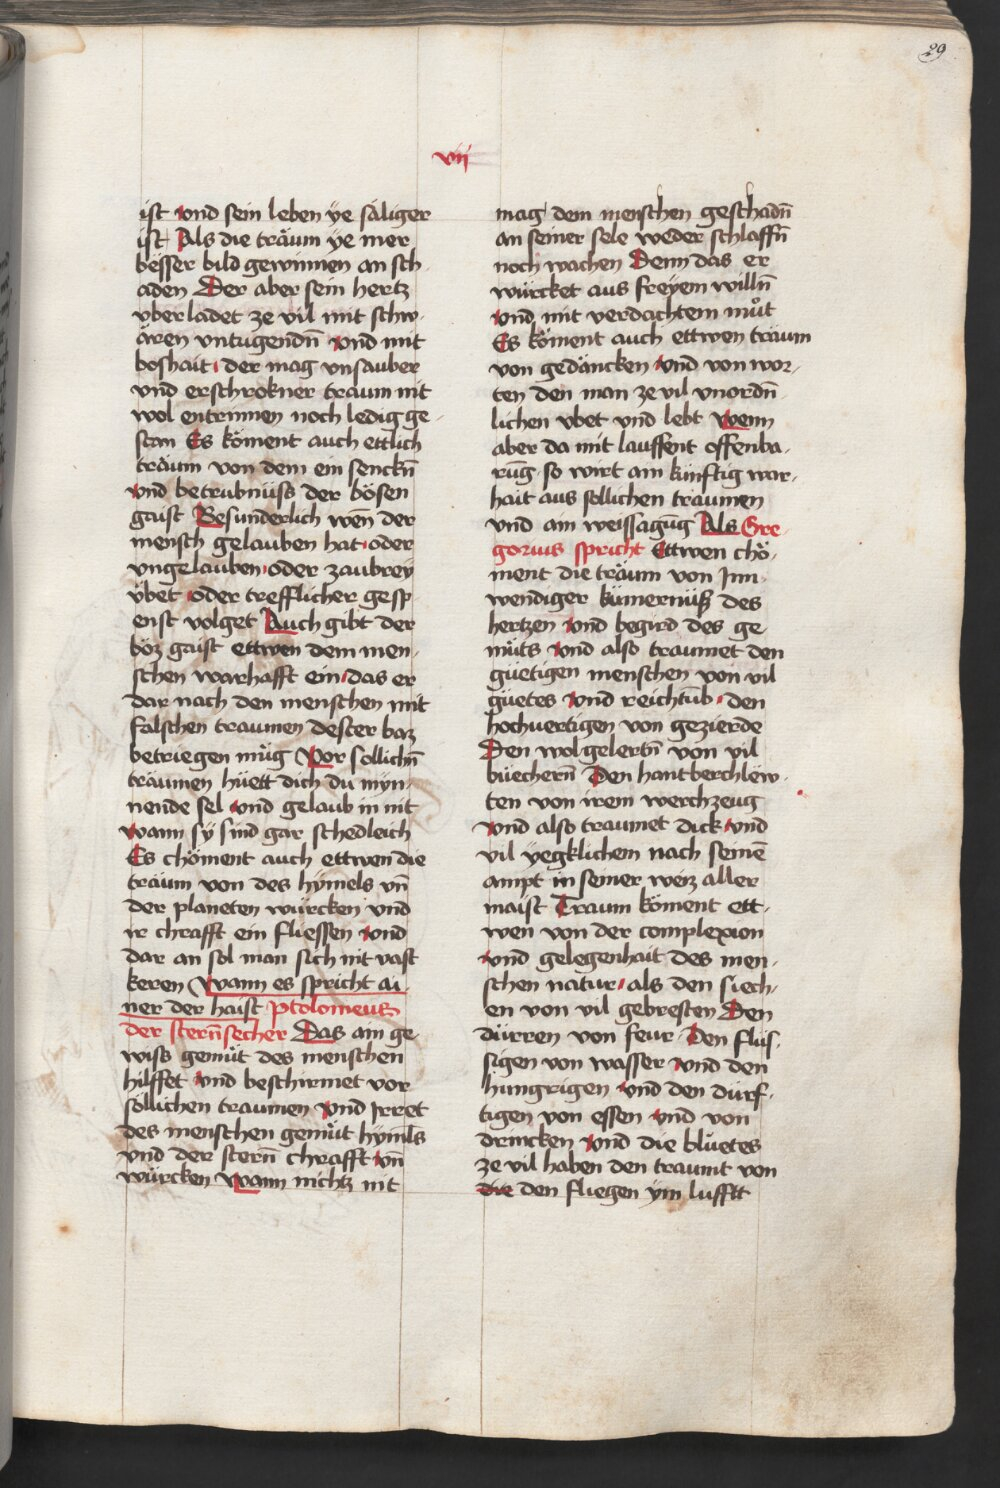 29
vij
ist vnd sein leben ÿe säliger
ist Als die träum ÿe mer
besser bild gewinnen an sch
aden Der aber sein hertz
vberladet ze vil mit schw-
ären vntugendn̄ vnd mit
boshait der mag vnsauber
vnd erschrokner traum nit
wol entrinnen noch ledig ge-
stan Es köment auch ettlich
träum von dem ein senckn̄
vnd betrubnüss der bösen
gaist Besunderlich wen̄ der
mensch gelauben hat oder
vngelauben oder zaubreÿ
ÿbet oder trefflicher gesp-
enst volget Auch gibt der
böz gaist ettwen dem men-
schen warhafft ein das er
dar nach den menschen mit
falschen traumen dester baz
betriegen müg Vor sollichn̄
träumen hüett dich du mÿn-
nende sel vnd gelaub in nit
wann sÿ sind gar schedleich
Es chöment auch ettwen die
träum von des hÿmels vn̄
der planeten würcken vnd
ir chrafft ein fliessen vnd
dar an sol man sich nit vast
keren wann es spricht ai-
ner der haist Ptolomeus
der stern̄secher Das ain ge-
wiss gemüt des menschen
hilffet vnd beschirmet vor
söllichen traumen vnd Irret
des menschen gemüt hÿmls
vnd der stern̄ chrafft vn̄
würcken wann nichtz nit
mag dem menschen geschadn̄
an seiner sele weder schlaffn̄
noch wachen Denn das er
würcket aus freÿem willn̄
vnd mit verdachtem můt
Es köment auch ettwen träum
von gedäncken vnd von wor-
ten den man ze vil vnordn̄
lichen vbet vnd lebt Wenn
aber da mit lauffent offenba-
rūg so wirt ain künftig war-
hait aus sollichen träumen
vnd ain weissagūg Als Gre-
gorius spricht Ettwen chö-
ment die träum von Inn
wendiger kümernüß des
hertzen vnd begird des ge
müts vnd also traumet den
güetigen menschen von vil
güetes vnd reichtūb den
hochuertigen von gezierde
Den wolgelertn̄ von vil
büechern̄ Den hantberchlëw-
ten von irem werchzeug
vnd also traumet dick vnd
vil ÿegklichem nach seinē
ampt in seiner weiz aller
maist Traum köment ett-
wen von der complexion
vnd gelegenhait des men-
schen natur als den siech-
en von vil gebresten Den
dürren von feur Den flüs-
sigen von wasser vnd den
hungrigen vnd den dürf-
tigen von essen vnd von
drincken vnd die blůetes
ze vil haben den traumt von
die den fliegen ÿm lufftt